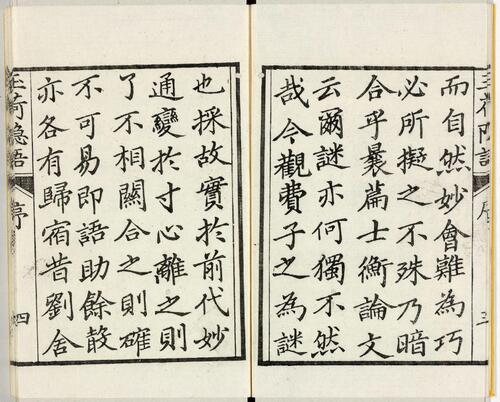 而自然妙會雖為巧
必所擬之不殊乃暗
合乎曩篇士衡論文
云爾謎亦何獨不然
哉今觀費子之為謎
三
也採故實於前代妙
通變於寸心離之則
了不相關合之則確
不可易即語助餘散
亦各有歸宿昔劉舍
玉荷隐語
序
四